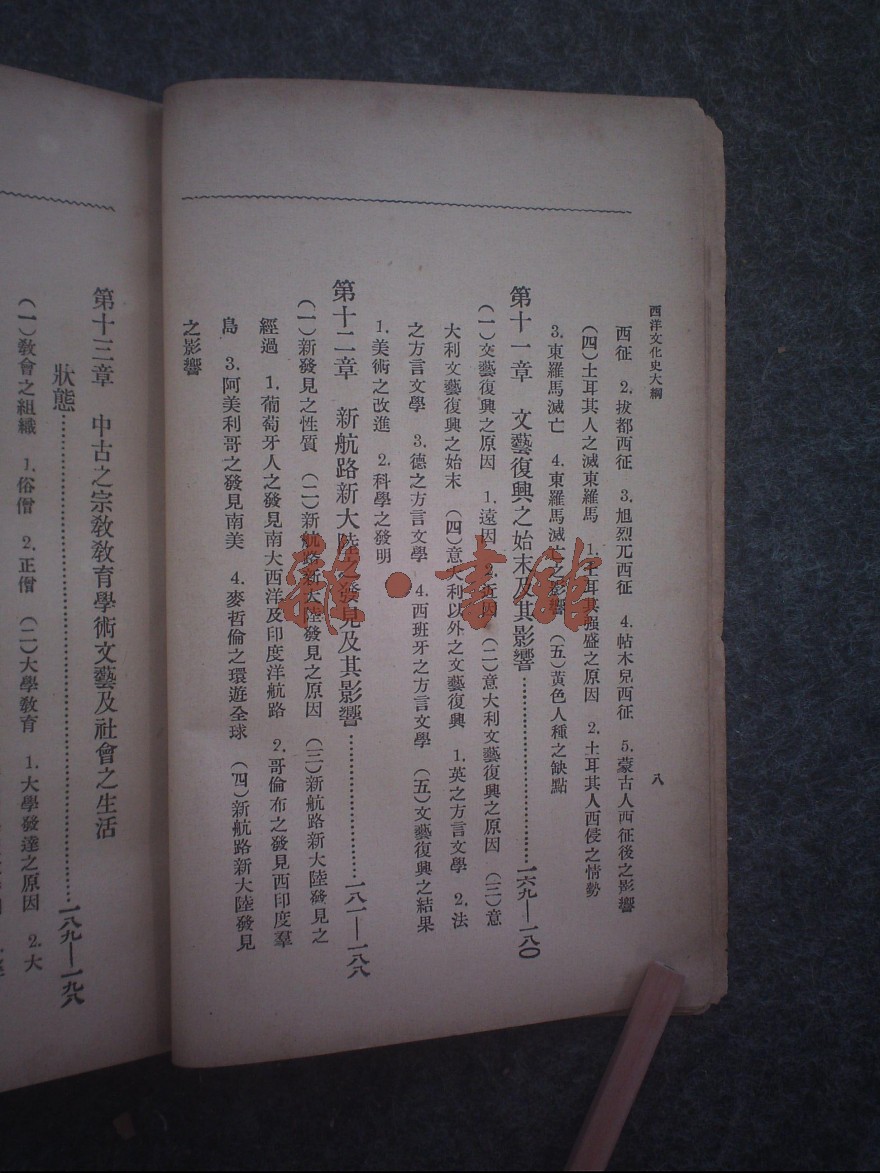 西洋文化史大綱
八
西征 2.拔都西征 3.旭烈兀西征 4.帖木兒西征 5.蒙古人西征後之影響
(四)土耳其人之滅東羅馬 1.土耳其强盛之原因 2.土耳其人西侵之情勢
3.東羅馬滅亡 4.東羅馬滅亡之影響 (五)黃色人種之缺點
第十一章 文藝復興之始末及其影響……………一六九—一八〇
(一)文藝復興之原因 1.遠因 2.近因 (二)意大利文藝復興之原因 (三)意
大利文藝復興之始末 (四)意大利以外之文藝復興 1.英之方言文學 2.法
之方言文學 3.德之方言文學 4.西班牙之方言文學 (五)文藝復興之結果
1.美術之改進 2.科學之發明
第十二章 新航路新大陸之發見及其影響……………一八一—一八八
(一)新發見之性質 (二)新航路新大陸發見之原因 (三)新航路新大陸發見之
經過 1.葡萄牙人之發見南大西洋及印度洋航路 2.哥倫布之發見西印度羣
島 3.阿美利哥之發見南美 4.麥哲倫之環遊全球 (四)新航路新大陸發見
之影響
第十三章 中古之宗教教育學術文藝及社會之生活
狀態……………一八九—一九八
(一)敎會之組織 1.俗僧 2.正僧 (二)大學敎育 1.大學發達之原因 2.大
雜·書館